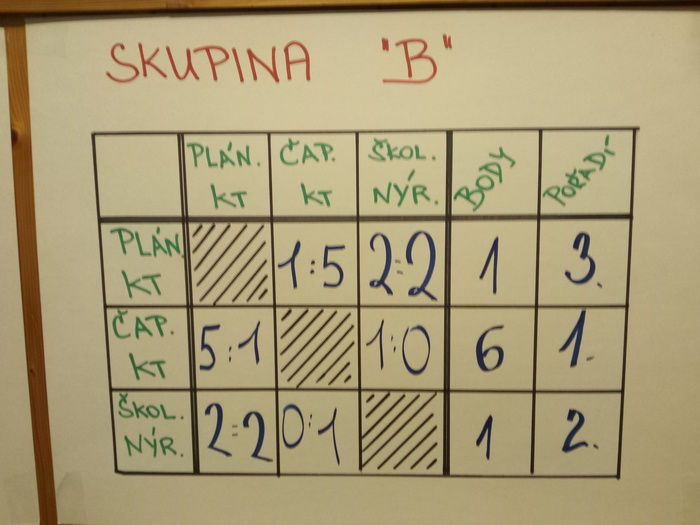 SKUPINA "B"
PLÁN. KT ČAP. KT ŠKOL. NÝR. BODY POŘADÍ
PLÁN. KT 1:5 2:2 1 3.
ČAP. KT 5:1 1:0 6 1.
ŠKOL. NÝR. 2:2 0:1 1 2.